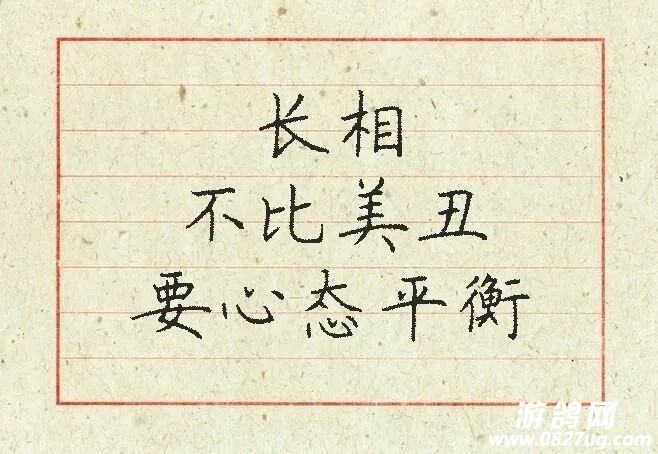 长相
不比美丑
要心态平衡
游鸽网
www.0827ug.com